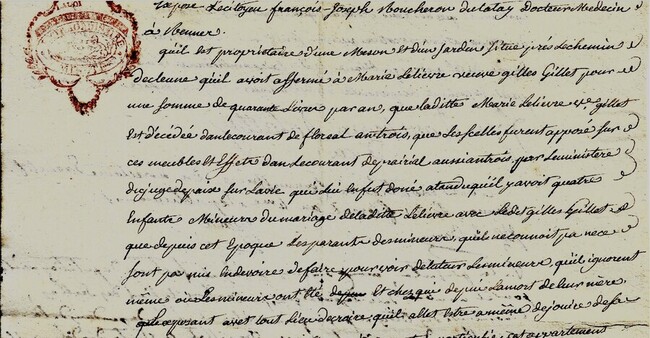 Expose Le citoyen françois-Joseph Moucheron du latay Docteur Medecin
à Rennes.
quil est proprietaire d'une Meson et d'un Jardin situe près Lechemin
quil avoit affermé à Marie Lelievre veuve gilles Gillet pour
une somme de quarante Livre par an, que laditte Marie Lelievre ve gillet
Est décédée dans le courant de floreal an trois, que Les scelles furent apposé sur
ces meubles Et Effets dan Lecourant de prairial aussi an trois, par Le ministere
du juge de paix sur Lavie que lui en fut donc, atandu quil y avoit quatre
Enfants Mineurs du mariage de laditte Lelievre avec Ledit gilles Gillet
que depuis cet Epoque Les parants des mineurs, quil ne connoit pa ne ce
sont pa mis En devoire de faire pourvoir de tuteur Les mineurs, quil ignorent
meme où Les mineurs ont Eté Et chez qui depui Lamort de leur mere.
que Lexposant avet tout Lieu de croire, quil allet Estre a meme de jouire de sa
cet appartement